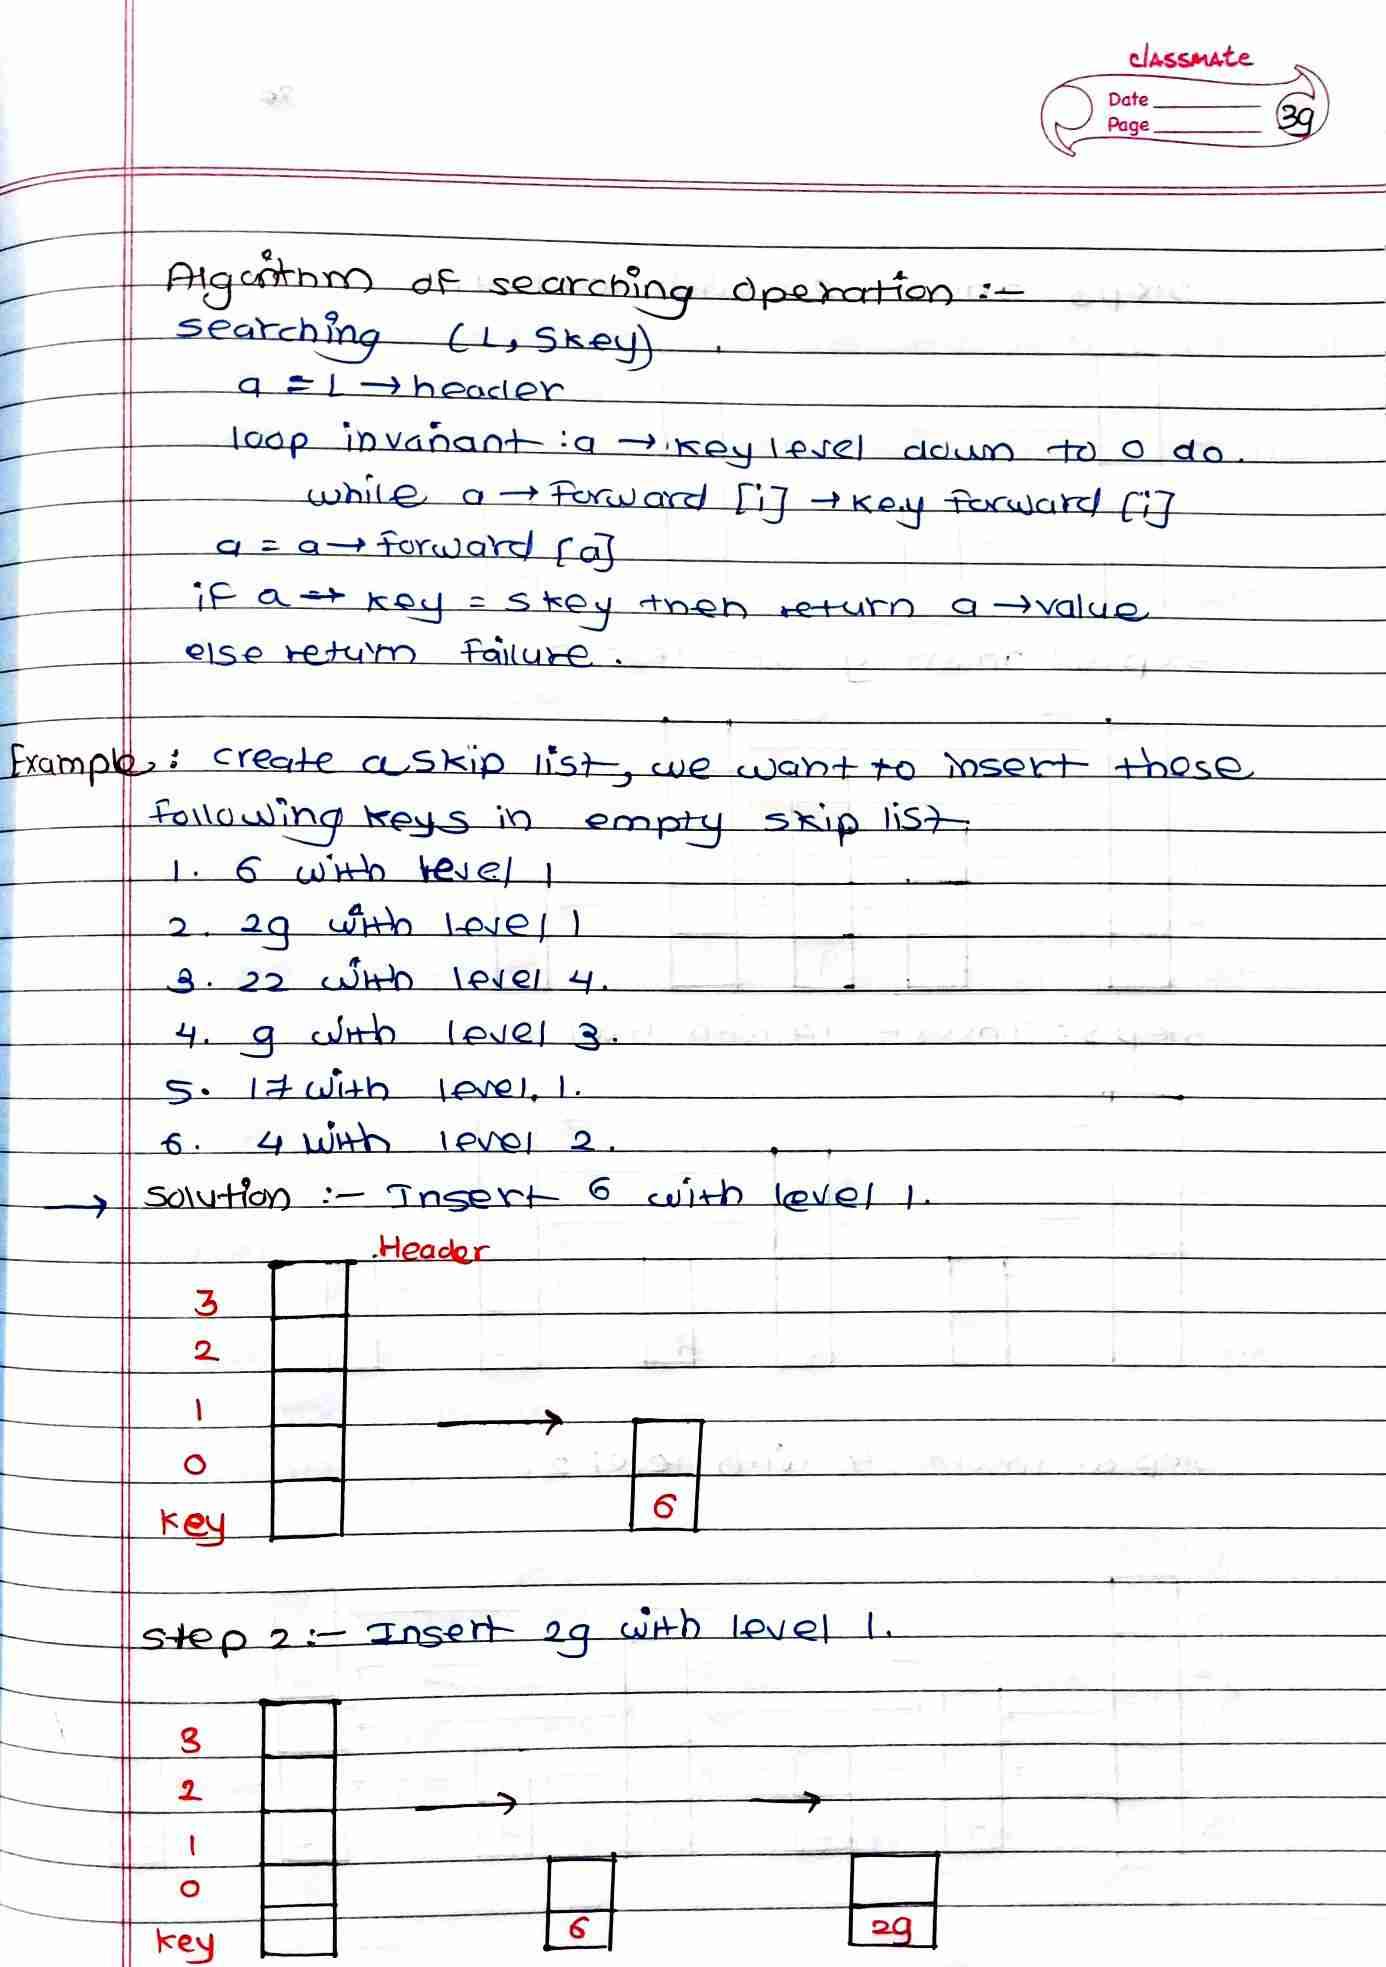 classmate
Date
Page
39
Algorithm of searching operation :-
searching (L, Skey)
a = L → header
loop invariant : a → key level down to 0 do.
while a → forward [i] → key forward [i]
a = a → forward [a]
if a → key = skey then return a → value
else return failure.
Example : create a skip list, we want to insert these
following keys in empty skip list.
1. 6 with level 1
2. 29 with level 1
3. 22 with level 4.
4. 9 with level 3.
5. 17 with level 1.
6. 4 with level 2.
→ solution :- Insert 6 with level 1.
Header
3
2
1
0
key
6
step 2 :- Insert 29 with level 1.
3
2
1
0
key
6
29